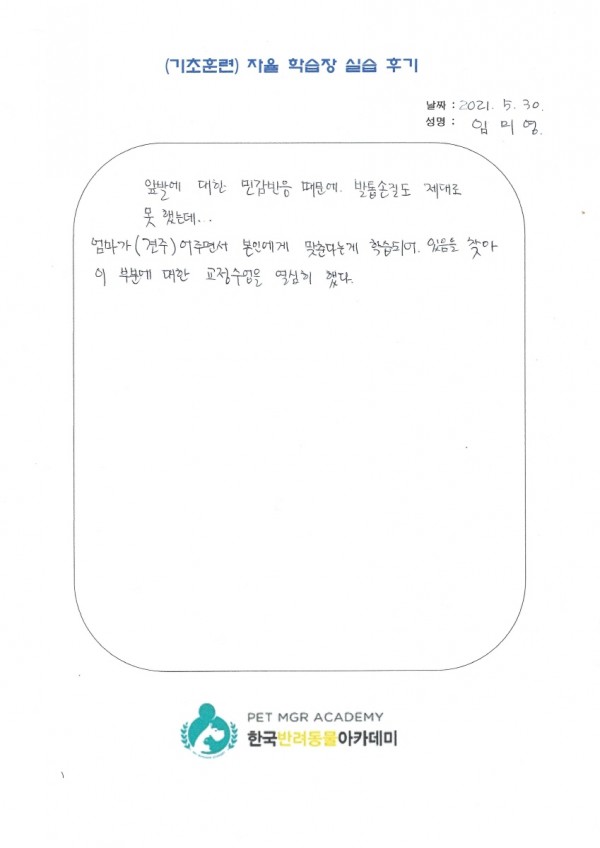 (기초훈련) 자율 학습장 실습 후기
날짜 : 2021. 5. 30.
성명 : 임미영.
앞발에 대한 민감반응 때문에. 발톱손질도 제대로
못 했는데...
엄마가 (견주) 어주면서 본인에게 맞춘다는게 학습되어. 있음을 찾아
이 부분에 대한 교정수업을 열심히 했다.
PET MGR ACADEMY
한국반려동물아카데미